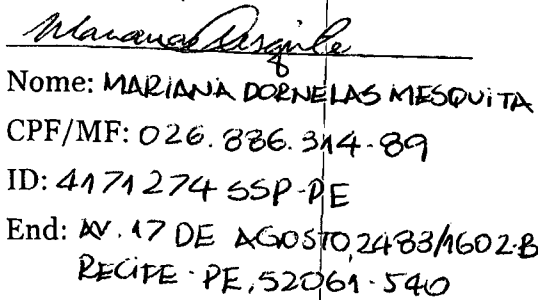 Mariana Mesquita
Nome: MARIANA DORNELAS MESQUITA
CPF/MF: 026.886.314-89
ID: 4171274 SSP-PE
End: AV. 17 DE AGOSTO, 2483/1602-B
RECIFE - PE, 52061-540